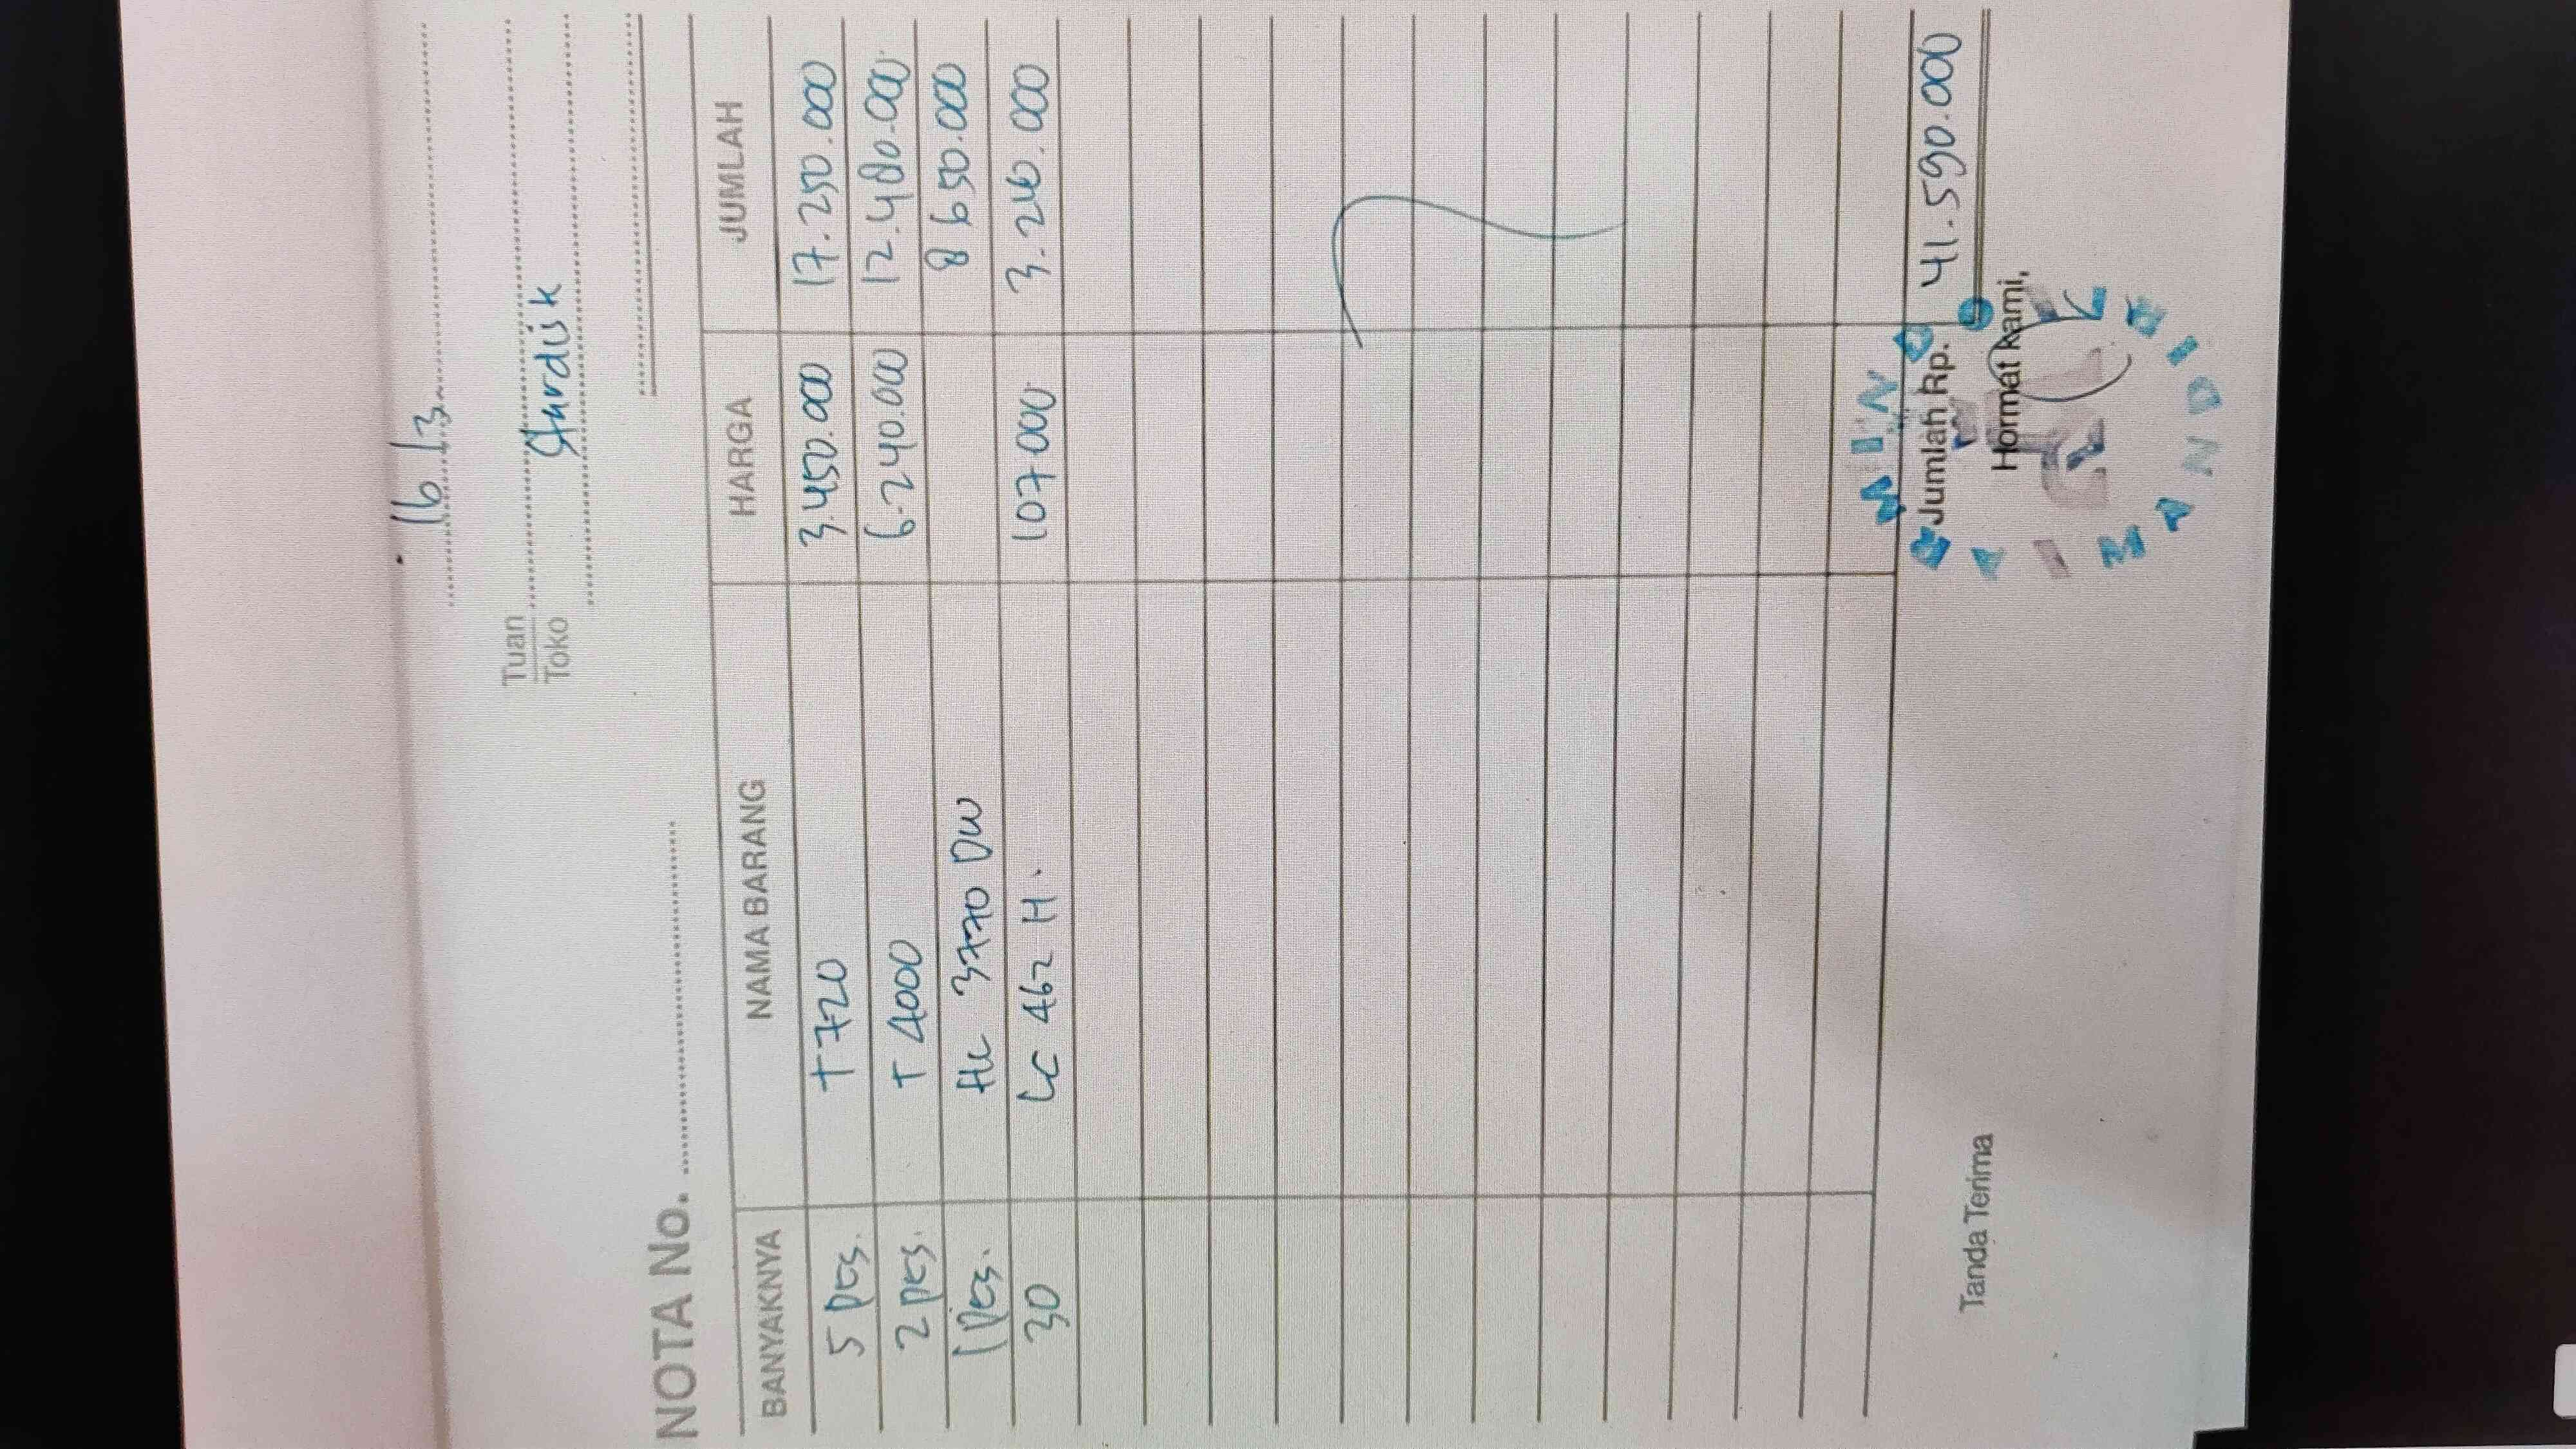 16/3
Tuan
Toko
Stardisk
NOTA No.
BANYAKNYA NAMA BARANG HARGA JUMLAH
5 pcs. T720 3.450.000 17.250.000
2 pcs. T 4000 6.240.000 12.480.000
1 pcs. HL 3770 DW 8 650.000
30 LC 462 H. 107 000 3.210.000
Jumlah Rp. 41.590.000
Tanda Terima Hormat kami,